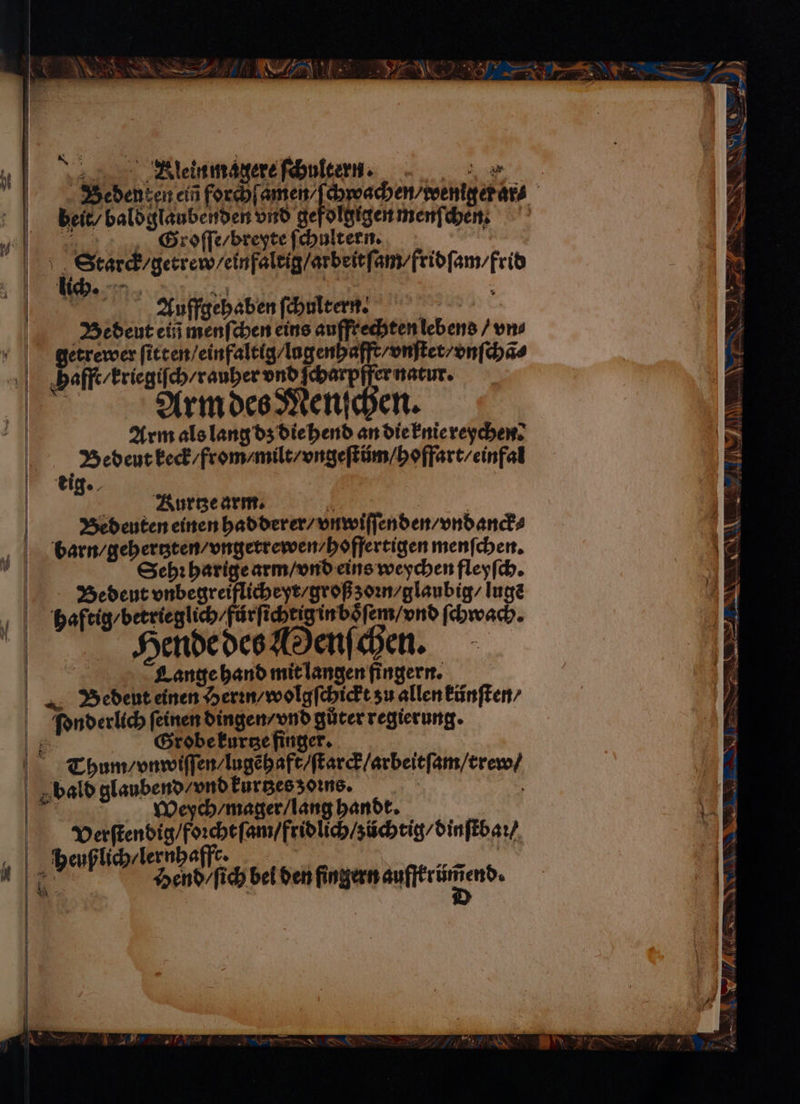 Klein magere ſchultern.
Bedeuten ein̄ forchſamen/ſchwachen/weniger ar⸗
beit/ bald glaubenden vnd gefolgigen menſchen.
Groſſe/breyte ſchultern.
Starck/getrew/einfaltig/arbeitſam/fridſam/frid
lich.
Auffgehaben ſchultern.
Bedeut ein̄ menſchen eins auffrechten lebens / vn⸗
getrewer ſitten/einfaltig/lugenhafft/vnſtet/vnſchā⸗
hafft/kriegiſch/rauher vnd ſcharpffer natur.
Arm des Menſchen.
Arm als lang dz die hend an die knie reychen.
Bedeut keck/from/milt/vngeſtüm/hoffart/einfal
tig.
Kurtze arm.
Bedeuten einen hadderer/vnwiſſenden/vndanck⸗
barn/gehertzten/vngetrewen/hoffertigen menſchen.
Sehꝛ harige arm/vnd eins weychen fleyſch.
Bedeut vnbegreiflicheyt/groß zoꝛn/glaubig/ lugē
hafftig/betrieglich/fürſichtig in böſem/vnd ſchwach.
Hende des Menſchen.
Lange hand mit langen fingern.
Bedeut einen Herꝛn/wolgſchickt zu allen künſten/
ſonderlich ſeinen dingen/vnd gůter regierung.
Grobe kurtze finger.
Thum/vnwiſſen/lugēhaft/ſtarck/arbeitſam/trew/
bald glaubend/vnd kurtzes zoꝛns.
Weych/mager/lang handt.
Verſtendig/foꝛchtſam/fridlich/züchtig/dinſtbaꝛ/
heußlich/lernhafft.
Hend/ſich bei den fingern auffkrüm̄end.
D